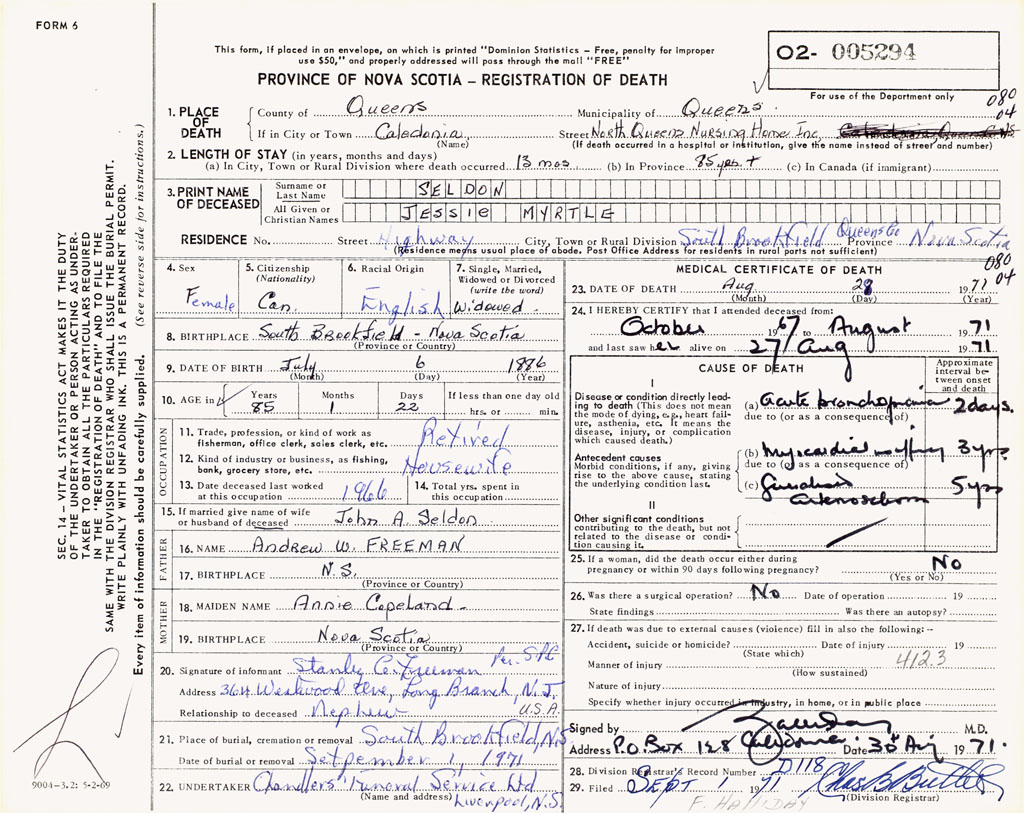 FORM 6
This form, if placed in an envelope, on which is printed "Dominion Statistics – Free, penalty for improper
use $50," and properly addressed will pass through the mail "FREE"
PROVINCE OF NOVA SCOTIA – REGISTRATION OF DEATH
02- 005294
For use of the Department only
080
04
1. PLACE OF DEATH
County of Queens Municipality of Queens.
If in City or Town Caledonia, Street North Queens Nursing Home Inc.
(Name) (If death occurred in a hospital or institution, give the name instead of street and number)
2. LENGTH OF STAY (in years, months and days)
(a) In City, Town or Rural Division where death occurred 13 mos (b) In Province 85 yrs. + (c) In Canada (if immigrant)
3. PRINT NAME OF DECEASED
Surname or Last Name SELDON
All Given or Christian Names JESSIE MYRTLE
RESIDENCE No. Street Highway City, Town or Rural Division South Brookfield Queens Co Province Nova Scotia
(Residence means usual place of abode. Post Office Address for residents in rural parts not sufficient)
080
04
4. Sex Female
5. Citizenship (Nationality) Can.
6. Racial Origin English
7. Single, Married, Widowed or Divorced (write the word) Widowed
8. BIRTHPLACE South Brookfield – Nova Scotia
(Province or Country)
9. DATE OF BIRTH July 6 1886
(Month) (Day) (Year)
10. AGE in Years 85 Months 1 Days 22 If less than one day old hrs. or min.
OCCUPATION
11. Trade, profession, or kind of work as fisherman, office clerk, sales clerk, etc. Retired
12. Kind of industry or business, as fishing, bank, grocery store, etc. Housewife
13. Date deceased last worked at this occupation 1966
14. Total yrs. spent in this occupation
15. If married give name of wife or husband of deceased John A. Seldon
FATHER
16. NAME Andrew W. FREEMAN
17. BIRTHPLACE N.S.
(Province or Country)
MOTHER
18. MAIDEN NAME Annie Copeland
19. BIRTHPLACE Nova Scotia
(Province or Country)
20. Signature of informant Stanley C. Freeman Per. SPC
Address 364 Westwood Ave, Long Branch, N.J.
U.S.A.
Relationship to deceased Nephew
21. Place of burial, cremation or removal South Brookfield, N.S
Date of burial or removal Setpember 1, 1971
22. UNDERTAKER Chandlers' Funeral Service Ltd
(Name and address) Liverpool, N.S.
MEDICAL CERTIFICATE OF DEATH
23. DATE OF DEATH Aug 28 1971
(Month) (Day) (Year)
24. I HEREBY CERTIFY that I attended deceased from:
October 1967 to August 1971
and last saw her alive on 27 Aug 1971
CAUSE OF DEATH
Approximate interval between onset and death
I
Disease or condition directly leading to death (This does not mean the mode of dying, e.g., heart failure, asthenia, etc. It means the disease, injury, or complication which caused death.)
(a) Acute bronchopneumonia 2 days.
due to (or as a consequence of)
Antecedent causes
Morbid conditions, if any, giving rise to the above cause, stating the underlying condition last.
(b) Myocardial 3 yrs.
due to (or as a consequence of)
(c) 5 yrs
II
Other significant conditions
contributing to the death, but not related to the disease or condition causing it.
25. If a woman, did the death occur either during pregnancy or within 90 days following pregnancy? No
(Yes or No)
26. Was there a surgical operation? No Date of operation 19
State findings Was there an autopsy?
27. If death was due to external causes (violence) fill in also the following: –
Accident, suicide or homicide? Date of injury 19
(State which)
412.3
Manner of injury
(How sustained)
Nature of injury
Specify whether injury occurred in industry, in home, or in public place
Signed by M.D.
Address P.O. Box 128 Caledonia Date 30 Aug 1971.
28. Division Registrar's Record Number D118
29. Filed SEPT 1 1971
(Division Registrar)
F. HALLIDAY
SEC. 14 – VITAL STATISTICS ACT MAKES IT THE DUTY
OF THE UNDERTAKER OR PERSON ACTING AS UNDER-
TAKER TO OBTAIN ALL THE PARTICULARS REQUIRED
IN THE "REGISTRATION OF DEATH" AND TO FILE THE
SAME WITH THE DIVISION REGISTRAR WHO SHALL ISSUE THE BURIAL PERMIT.
WRITE PLAINLY WITH UNFADING INK. THIS IS A PERMANENT RECORD.
Every item of information should be carefully supplied. (See reverse side for instructions.)
9004-3.2: 5-2-69